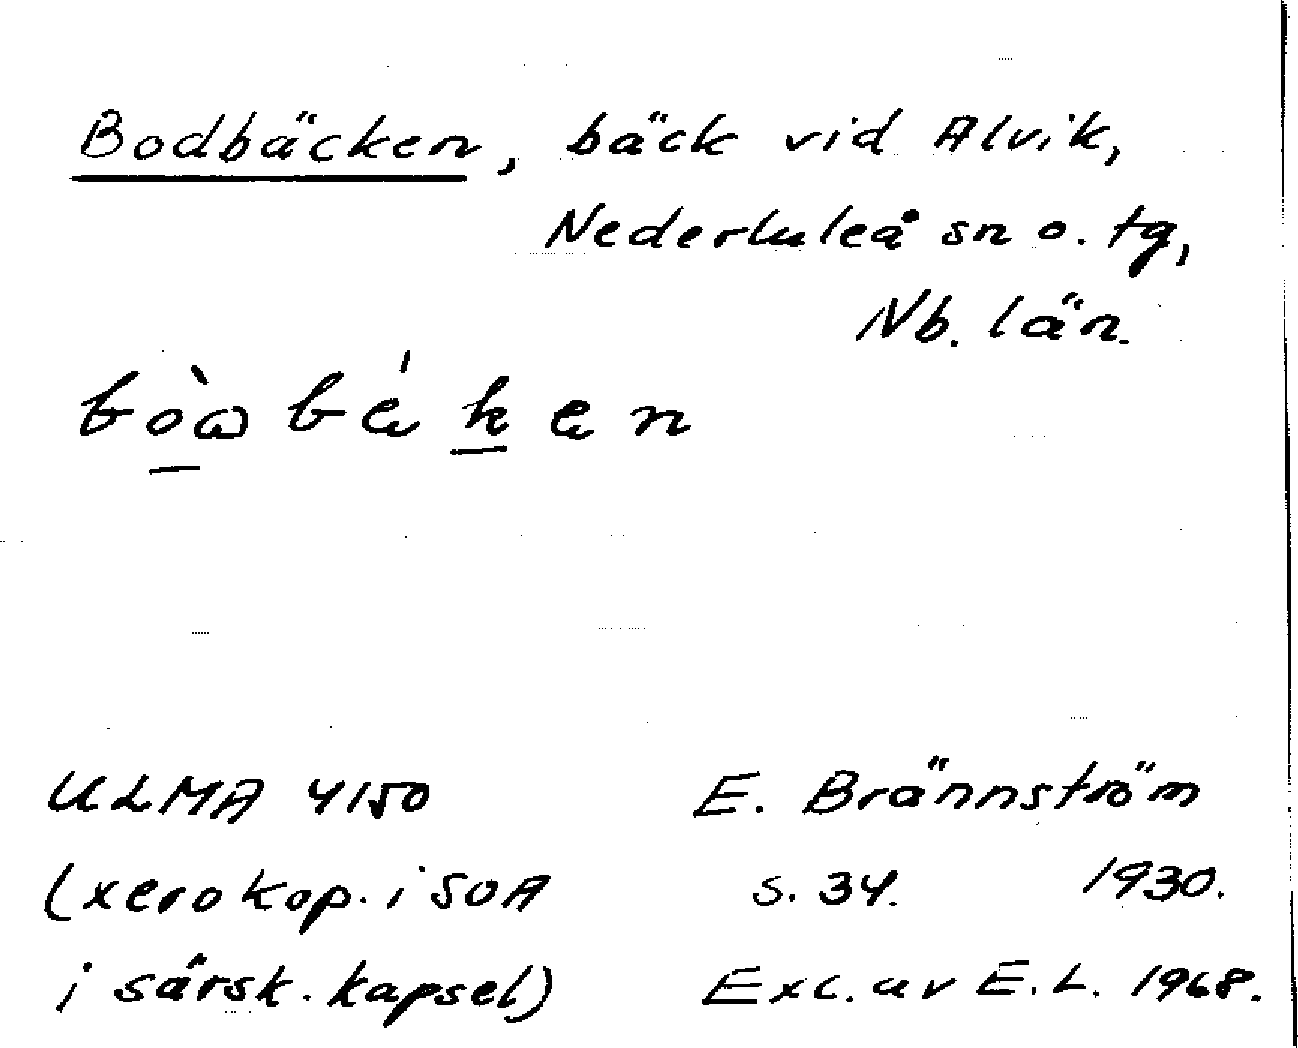 Bodbäcken, bäck vid Alvik,
Nederluleå sn o. tg,
Nb. län.
ULMA 4150
(xerokop. i SOA
i särsk. kapsel)
E. Brännström
s. 34. 1930.
Exc. av E. L. 1968.